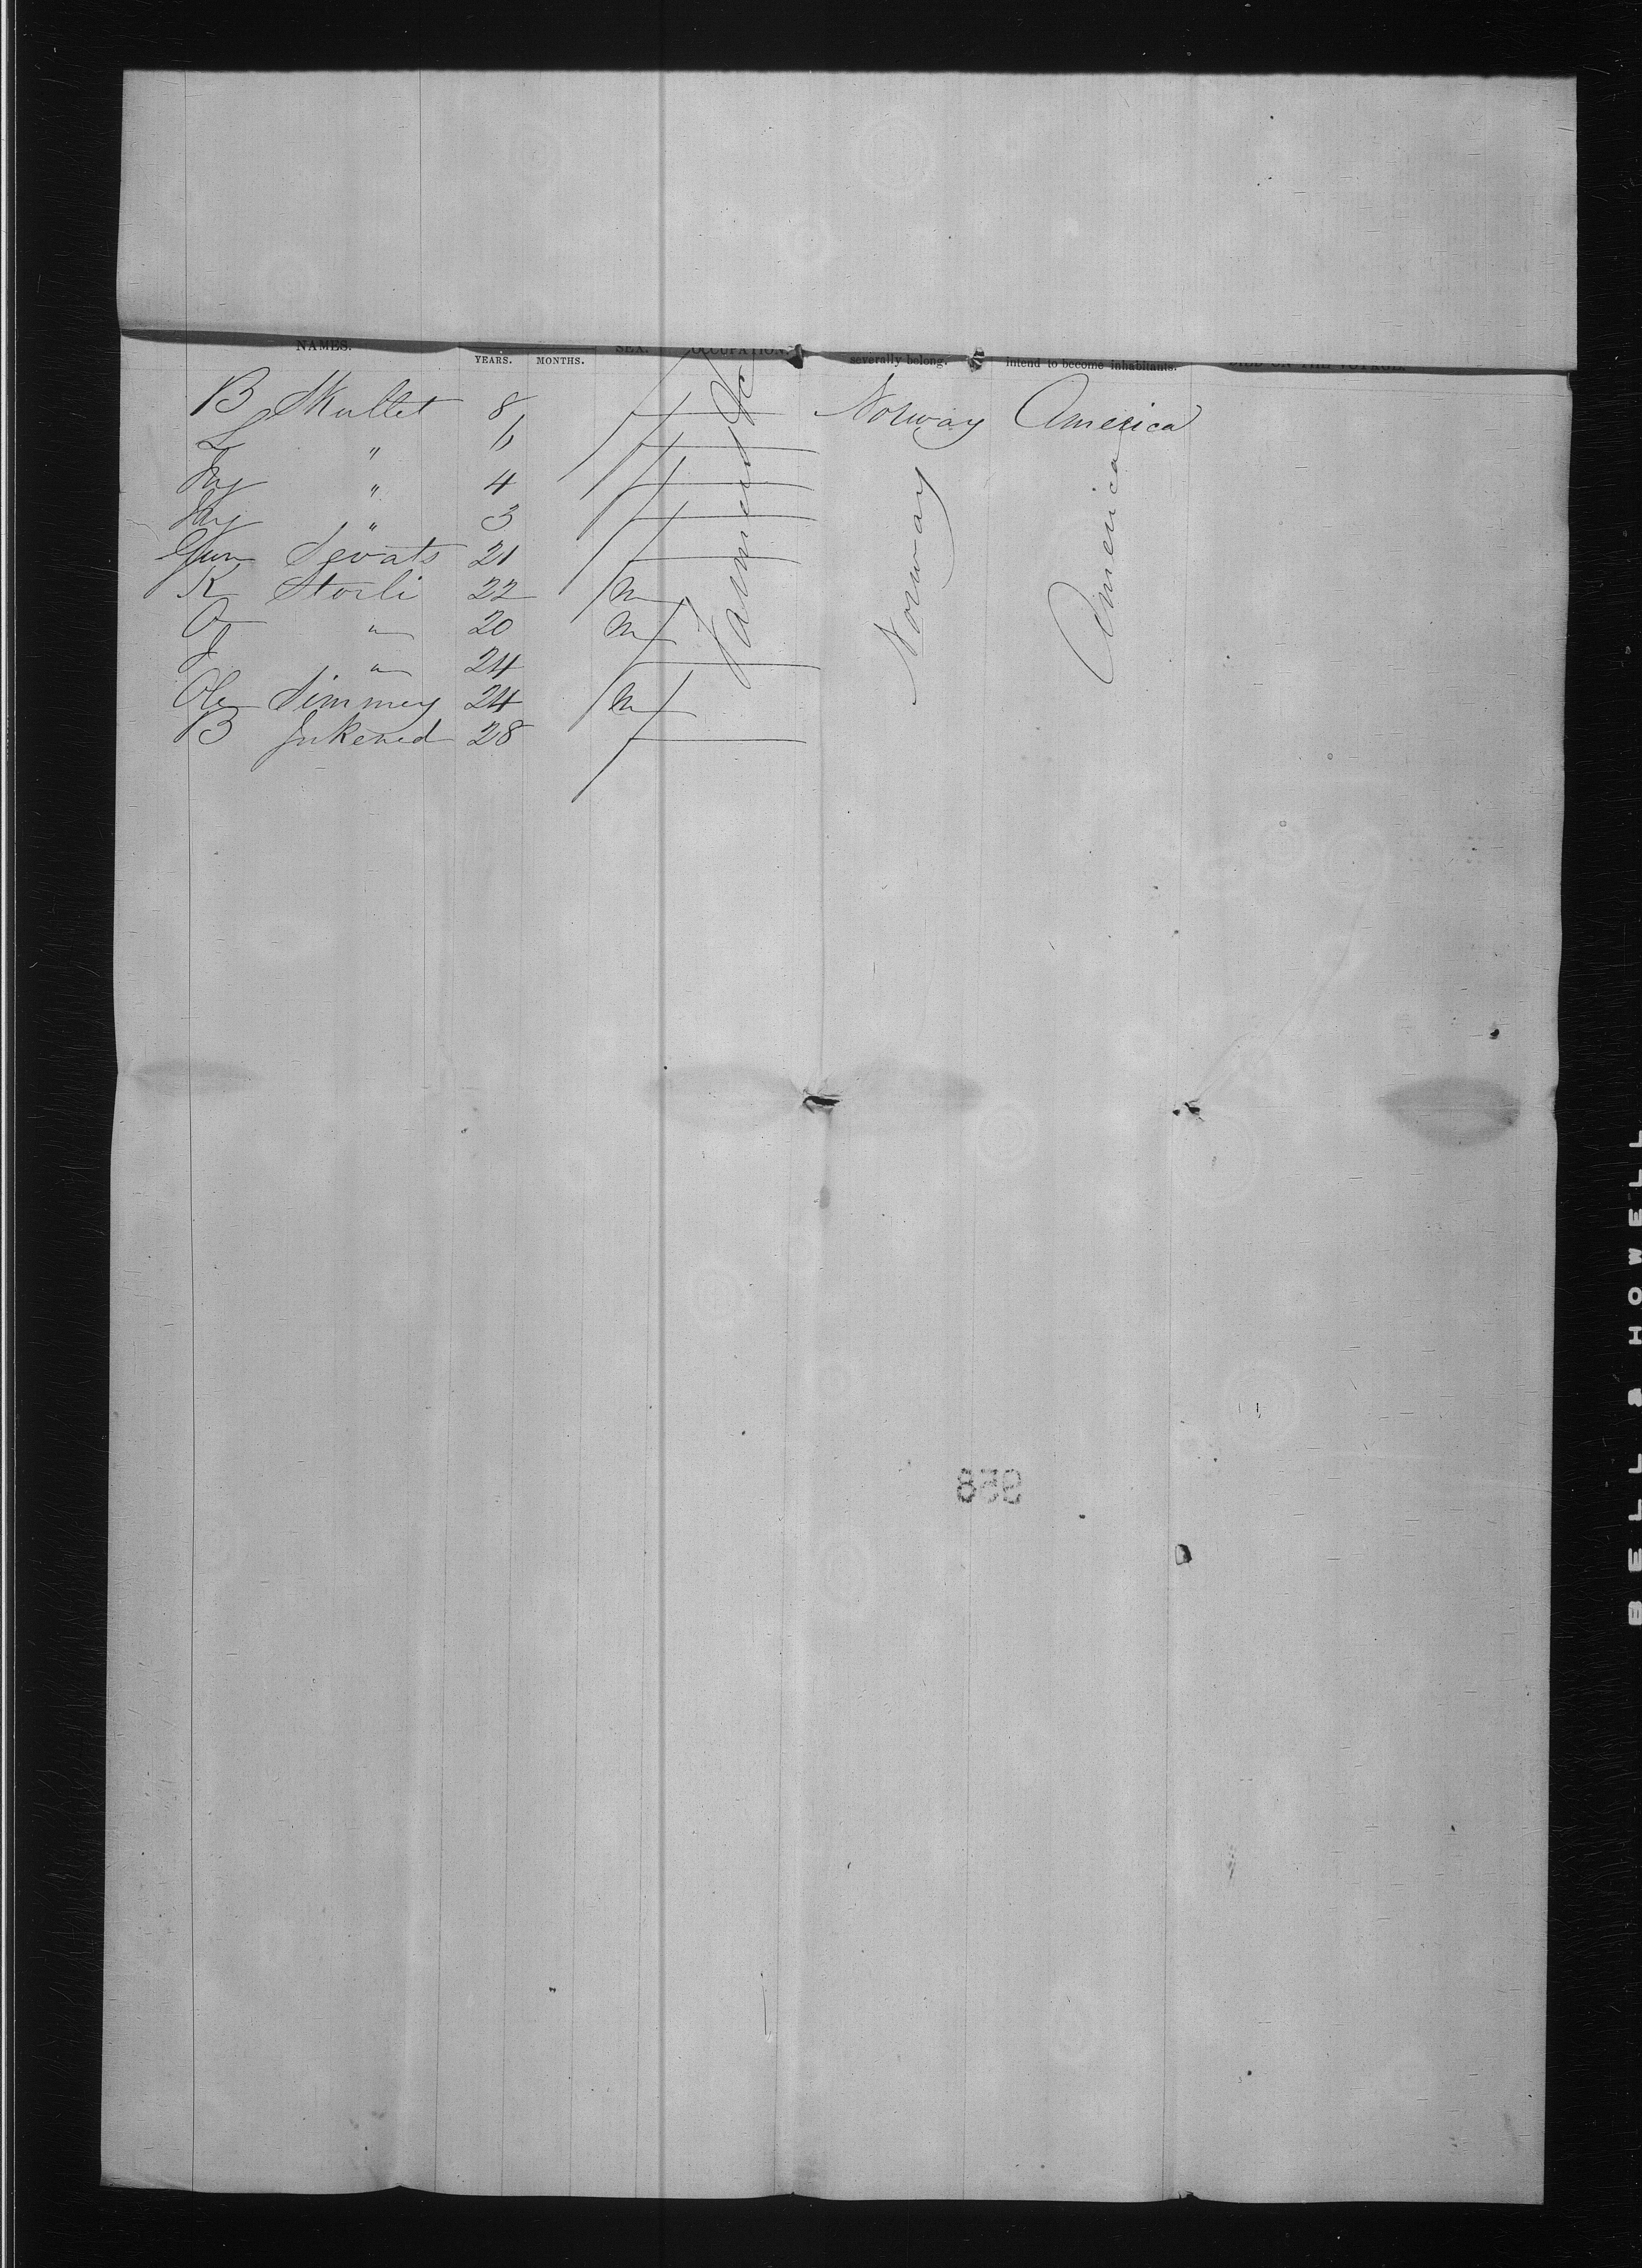 NAMES. YEARS. MONTHS. SEX. OCCUPATION. severally belong. intend to become inhabitants. DIED ON THE VOYAGE.
B Skullet 8 f Norway America
L " 6 f
" 4 f
" 3 f
Gun Sevats 21 f
K Storli 22 m
O " 20 m
J " 24 f
Ole Simmey 24 m
B Jnkered 28 f
Farmers &c
Norway
America
858
BELL & HOWELL